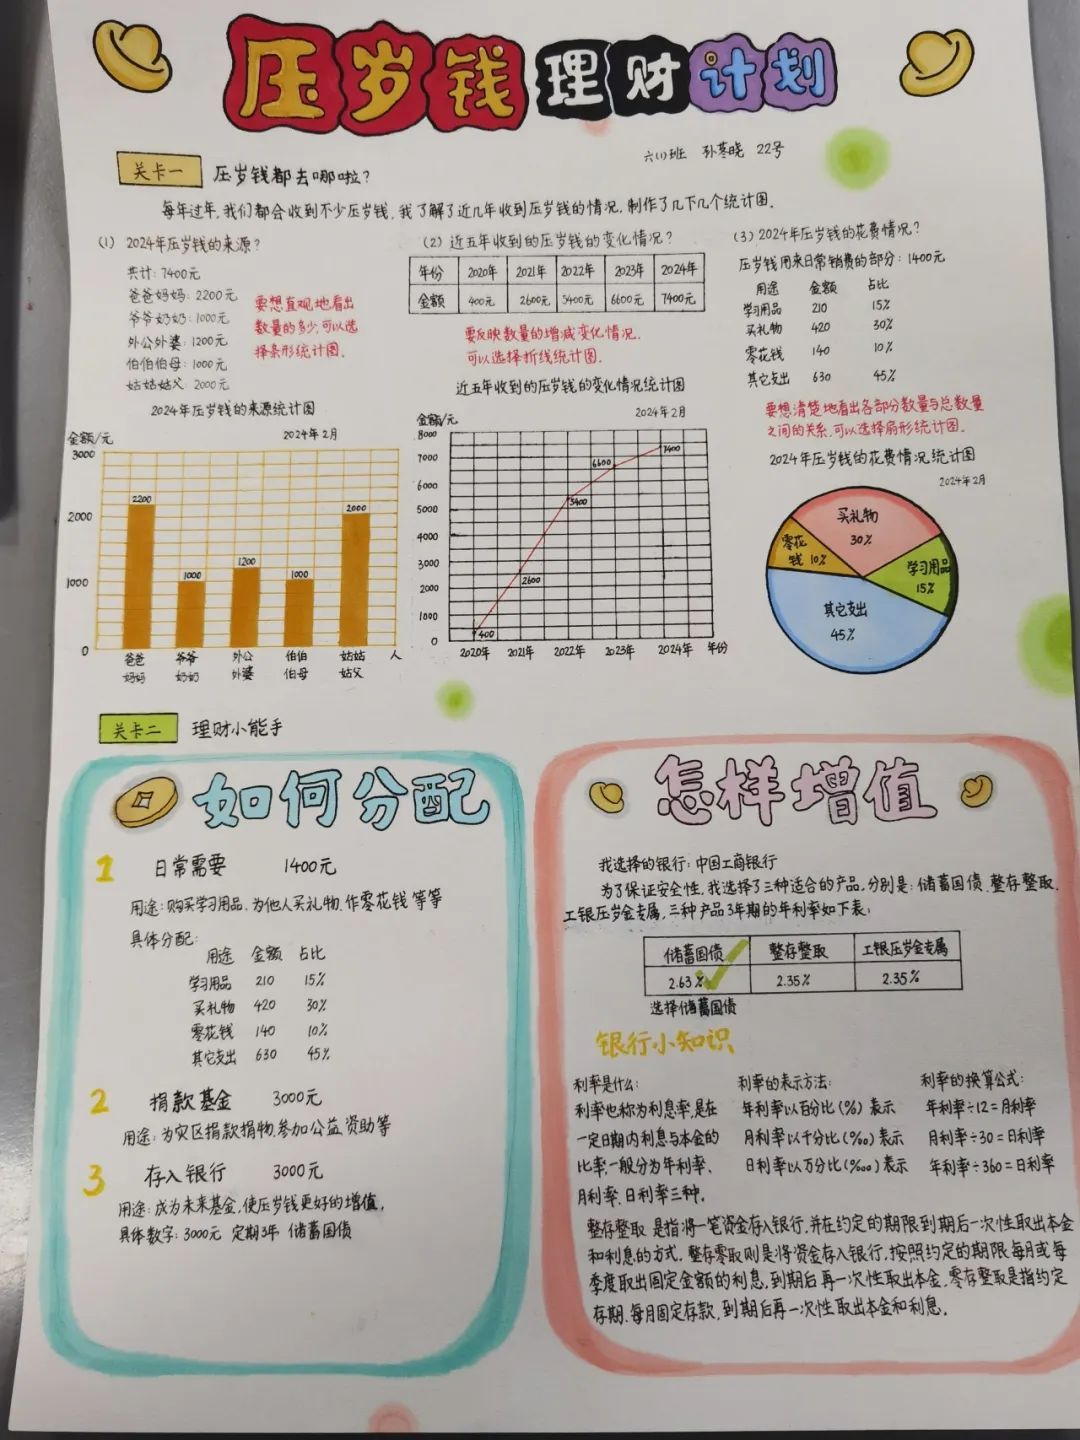 压岁钱理财计划
六(1)班 孙 晓 22号
关卡一 压岁钱都去哪啦？
每年过年，我们都会收到不少压岁钱，我了解了近几年收到压岁钱的情况，制作了几下几个统计图。
(1) 2024年压岁钱的来源？
共计：7400元
爸爸妈妈：2200元
爷爷奶奶：1000元
外公外婆：1200元
伯伯伯母：1000元
姑姑姑父：2000元
要想直观地看出
数量的多少，可以选
择条形统计图。
2024年压岁钱的来源统计图
金额/元 2024年2月
3000
2000
1000
0
2200
1000
1200
1000
2000
爸爸 爷爷 外公 伯伯 姑姑 人
妈妈 奶奶 外婆 伯母 姑父
(2) 近五年收到的压岁钱的变化情况？
年份 2020年 2021年 2022年 2023年 2024年
金额 400元 2600元 5400元 6600元 7400元
要反映数量的增减变化情况，
可以选择折线统计图。
近五年收到的压岁钱的变化情况统计图
金额/元 2024年2月
8000
7000
6000
5000
4000
3000
2000
1000
0
400
2600
5400
6600
7400
2020年 2021年 2022年 2023年 2024年 年份
(3) 2024年压岁钱的花费情况？
压岁钱用来日常销费的部分：1400元
用途 金额 占比
学习用品 210 15%
买礼物 420 30%
零花钱 140 10%
其它支出 630 45%
要想清楚地看出各部分数量与总数量
之间的关系，可以选择扇形统计图。
2024年压岁钱的花费情况统计图
2024年2月
买礼物
30%
零花
钱 10%
学习用品
15%
其它支出
45%
关卡二 理财小能手
如何分配
1 日常需要 1400元
用途：购买学习用品、为他人买礼物、作零花钱等等
具体分配：
用途 金额 占比
学习用品 210 15%
买礼物 420 30%
零花钱 140 10%
其它支出 630 45%
2 捐款基金 3000元
用途：为灾区捐款捐物，参加公益资助等
3 存入银行 3000元
用途：成为未来基金，使压岁钱更好的增值。
具体数字：3000元 定期3年 储蓄国债
怎样增值
我选择的银行：中国工商银行
为了保证安全性，我选择了三种适合的产品，分别是：储蓄国债、整存整取、
工银压岁金专属，三种产品3年期的年利率如下表：
储蓄国债 整存整取 工银压岁金专属
2.63% 2.35% 2.35%
选择储蓄国债
银行小知识
利率是什么：
利率也称为利息率，是在
一定日期内利息与本金的
比率，一般分为年利率、
月利率、日利率三种。
利率的表示方法：
年利率以百分比(%)表示
月利率以千分比(‰)表示
日利率以万分比(‱)表示
利率的换算公式：
年利率÷12=月利率
月利率÷30=日利率
年利率÷360=日利率
整存整取是指将一笔资金存入银行，并在约定的期限到期后一次性取出本金
和利息的方式。整存零取则是将资金存入银行，按照约定的期限每月或每
季度取出固定金额的利息，到期后再一次性取出本金。零存整取是指约定
存期、每月固定存款，到期后再一次性取出本金和利息。